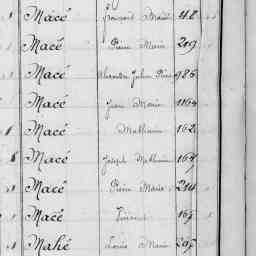 Macé François Marie 412
Macé Pierre Marie 209
Macé Alexandre Julien Pierre 985
Macé Jean Marie 1164
Macé Mathurin 162
Macé Joseph Mathurin 164
Macé Pierre Marie 214
Macé Vincent 169
Mahé Louis Marie 295